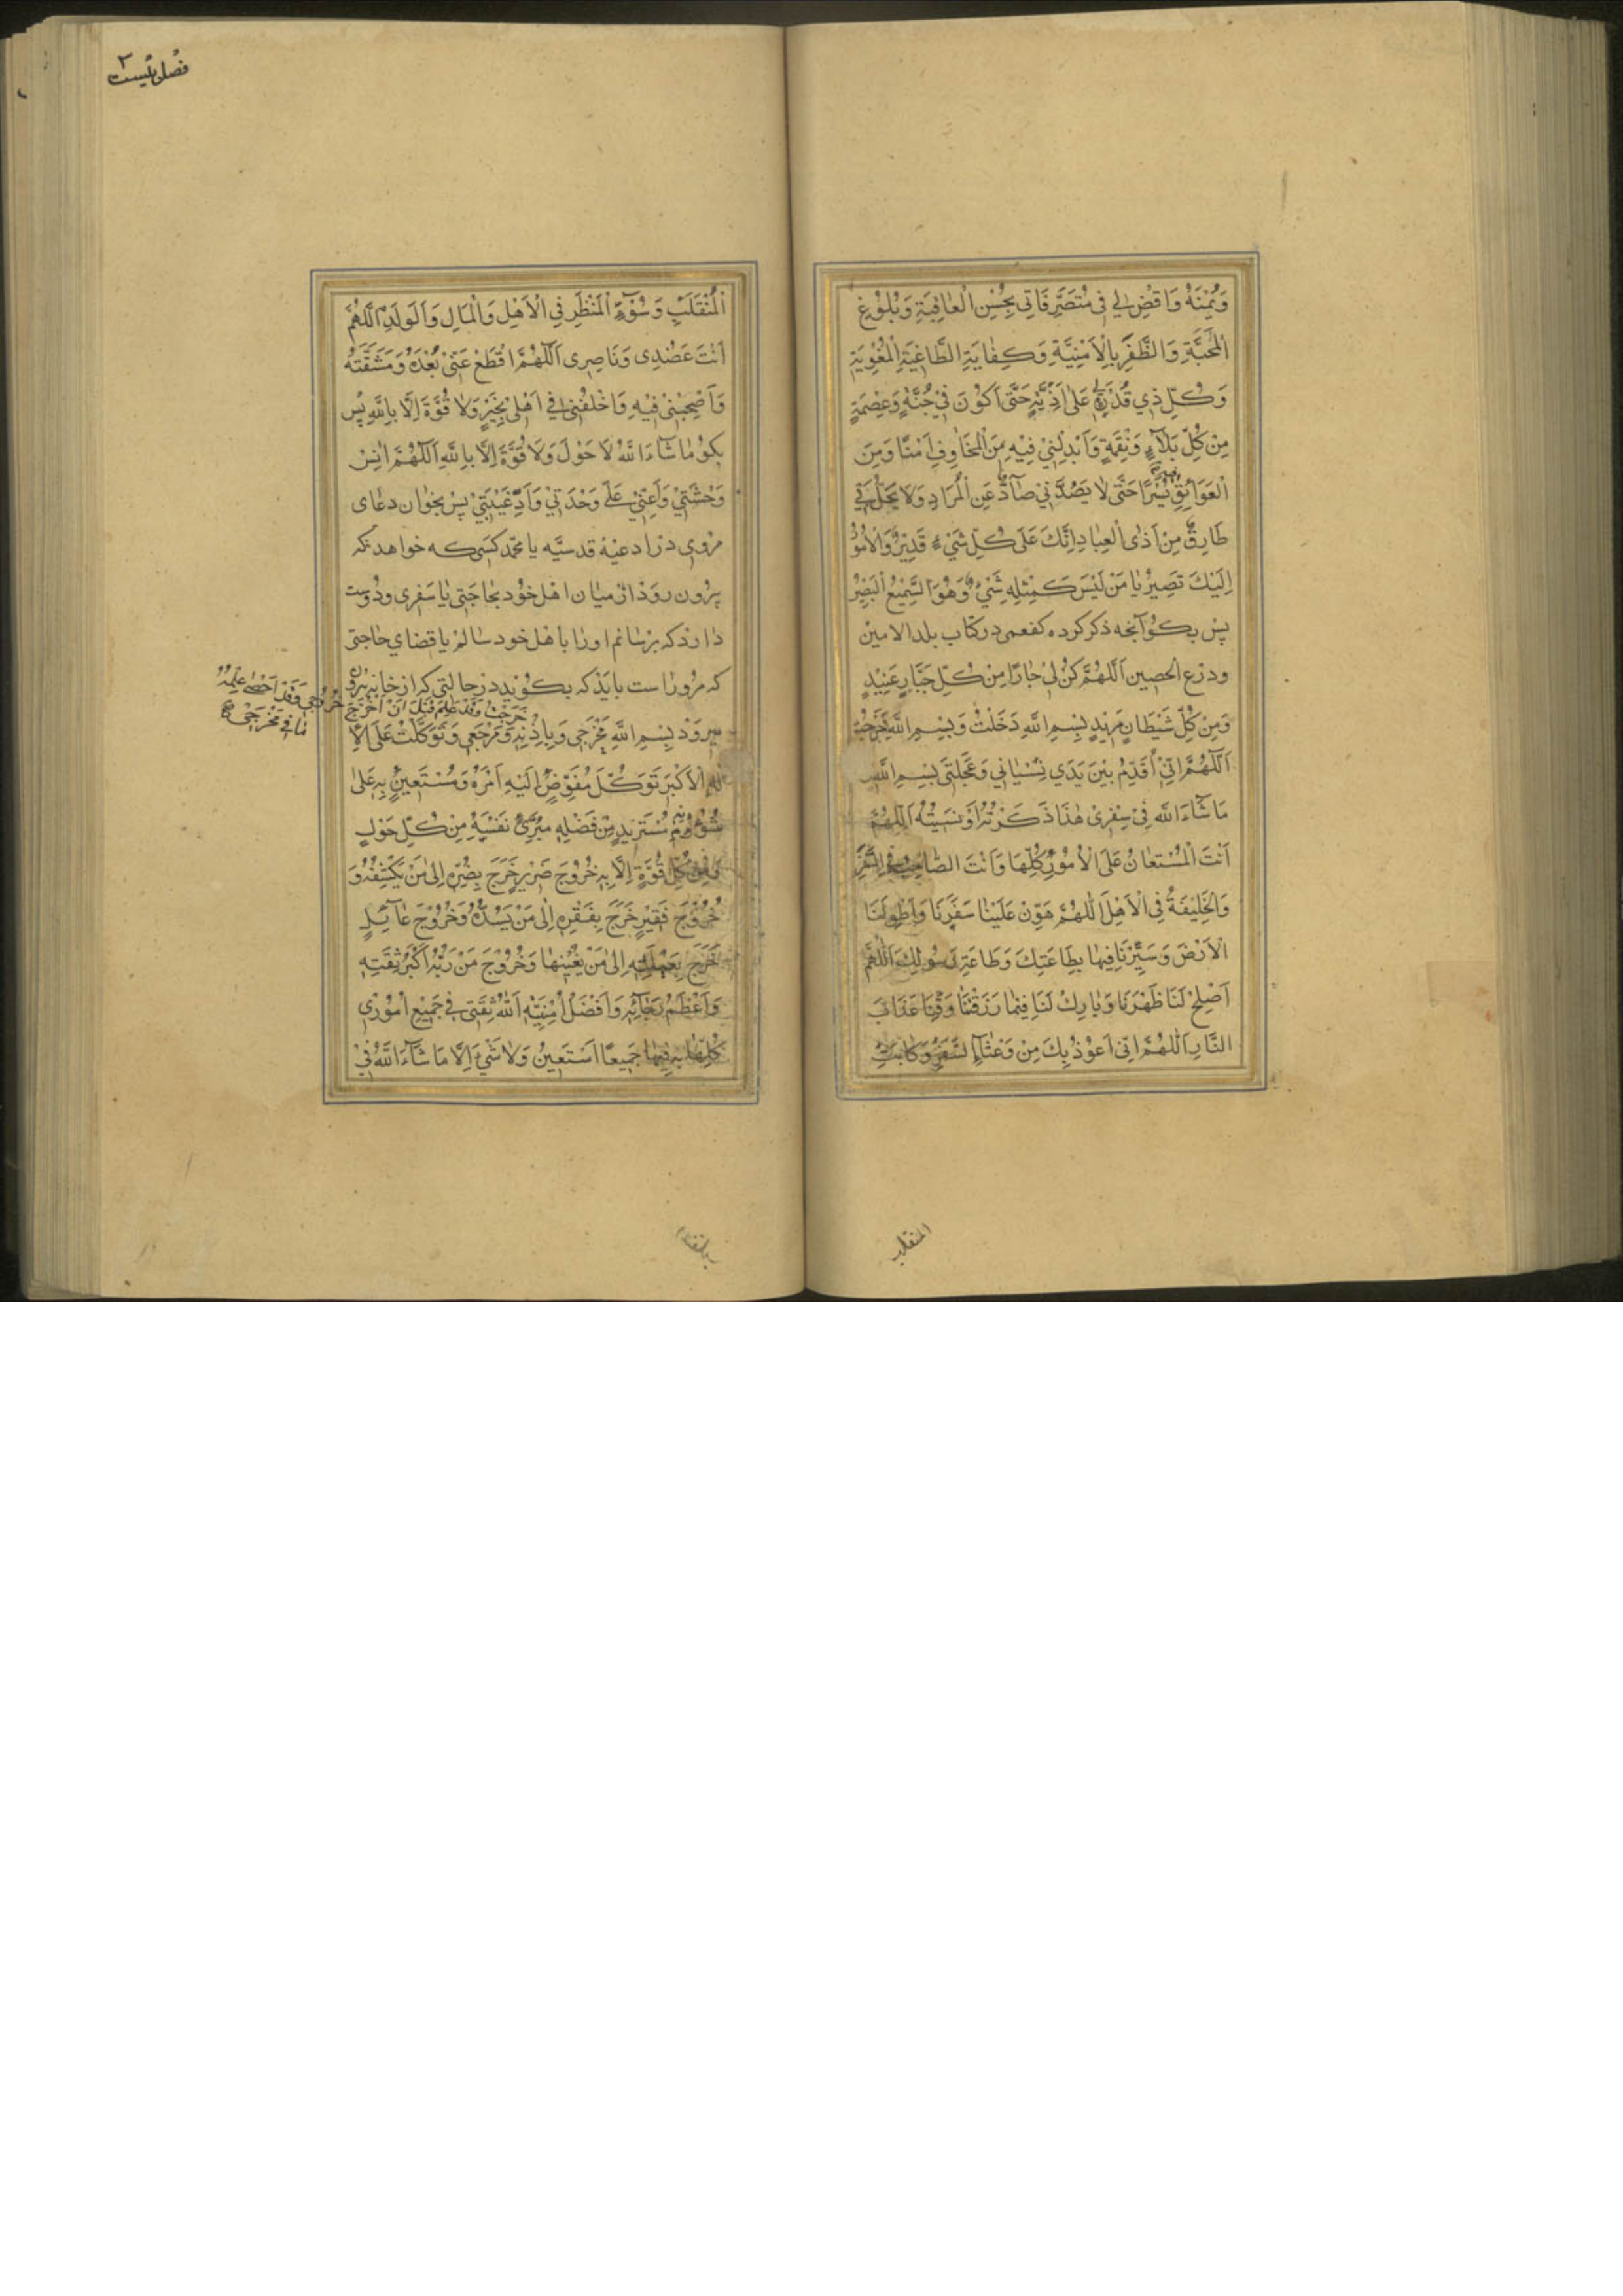 وَيُمْنَهُ وَاقْضِ لِي فِي مُتَصَرَّفَاتِي بِحُسْنِ الْعَافِيَةِ وَبُلُوغِ
الْمَحَبَّةِ وَالظَّفَرِ بِالْاُمْنِيَّةِ وَكِفَايَةِ الطَّاغِيَةِ الْمُغْوِيَةِ
وَكُلِّ ذِي قُدْرَةٍ لِي عَلَى اَذِيَّةٍ حَتَّى اَكُونَ فِي جُنَّةٍ وَعِصْمَةٍ
مِنْ كُلِّ بَلَاءٍ وَنِقْمَةٍ وَاَبْدِلْنِي فِيهِ مِنَ الْمَخَاوِفِ اَمْنًا وَمِنَ
الْعَوَائِقِ فِيهِ يُسْرًا حَتَّى لَا يَصُدَّنِي صَادٌّ عَنِ الْمُرَادِ وَلَا يَحُلَّ بِي
طَارِقٌ مِنْ اَذَى الْعِبَادِ اِنَّكَ عَلَى كُلِّ شَيْءٍ قَدِيرٌ وَالْاُمُورُ
اِلَيْكَ تَصِيرُ يَا مَنْ لَيْسَ كَمِثْلِهِ شَيْءٌ وَهُوَ السَّمِيعُ الْبَصِيرُ
پس بكو آنچه ذكر كرده كفعمى در كتاب بلد الامين
ودرع الحصين اَللّٰهُمَّ كُنْ لِي جَارًا مِنْ كُلِّ جَبَّارٍ عَنِيدٍ
وَمِنْ كُلِّ شَيْطَانٍ مَرِيدٍ بِسْمِ اللهِ دَخَلْتُ وَبِسْمِ اللهِ خَرَجْتُ
اَللّٰهُمَّ اِنِّي اُقَدِّمُ بَيْنَ يَدَيْ نِسْيَانِي وَعَجَلَتِي بِسْمِ اللهِ
مَا شَاءَ اللهُ فِي سَفَرِي هٰذَا ذَكَرْتُهُ اَوْ نَسِيتُهُ اَللّٰهُمَّ
اَنْتَ الْمُسْتَعَانُ عَلَى الْاُمُورِ كُلِّهَا وَاَنْتَ الصَّاحِبُ فِي السَّفَرِ
وَالْخَلِيفَةُ فِي الْاَهْلِ اَللّٰهُمَّ هَوِّنْ عَلَيْنَا سَفَرَنَا وَاطْوِ لَنَا
الْاَرْضَ وَسَيِّرْنَا فِيهَا بِطَاعَتِكَ وَطَاعَةِ رَسُولِكَ اَللّٰهُمَّ
اَصْلِحْ لَنَا ظَهْرَنَا وَبَارِكْ لَنَا فِيمَا رَزَقْتَنَا وَقِنَا عَذَابَ
النَّارِ اَللّٰهُمَّ اِنِّي اَعُوذُ بِكَ مِنْ وَعْثَاءِ السَّفَرِ وَكَآبَةِ
المنقلب
الْمُنْقَلَبِ وَسُوءِ الْمَنْظَرِ فِي الْاَهْلِ وَالْمَالِ وَالْوَلَدِ اَللّٰهُمَّ
اَنْتَ عَضُدِى وَنَاصِرِى اَللّٰهُمَّ اقْطَعْ عَنِّي بُعْدَهُ وَمَشَقَّتَهُ
وَاَصْحِبْنِي فِيهِ وَاخْلُفْنِي فِي اَهْلِي بِخَيْرٍ وَلَا قُوَّةَ اِلَّا بِاللهِ پس
بكو مَا شَاءَ اللهُ لَا حَوْلَ وَلَا قُوَّةَ اِلَّا بِاللهِ اَللّٰهُمَّ انِسْ
وَحْشَتِي وَاَعِنِّي عَلَى وَحْدَتِي وَاَدِّ غَيْبَتِي پس بخوان دعاى
مروى در ادعيه قدسيّه يا محمّد كسى كه خواهد كه
بيرون رود از ميان اهل خود بحاجتى يا سفرى ودوست
دارد كه برسانم اورا باهل خود سالم يا قضاي حاجتى
كه مر اوراست بايد كه بكويد در حالتي كه از خانه بيرون
ميرود بِسْمِ اللهِ مَخْرَجِي وَبِاِذْنِهِ خَرَجْتُ وَقَدْ عَلِمَ قَبْلَ اَنْ اَخْرُجَ خُرُوجِي وَقَدْ اَحْصَى عِلْمُهُ
مَا فِي مَخْرَجِي
وَمَرْجَعِي وَتَوَكَّلْتُ عَلَى الْاِ
لٰهِ الْاَكْبَرِ تَوَكُّلَ مُفَوِّضٍ اِلَيْهِ اَمْرَهُ وَمُسْتَعِينٍ بِهِ عَلَى
شُؤُونِهِ مُسْتَزِيدٍ مِنْ فَضْلِهِ مُبَرِّئٍ نَفْسَهُ مِنْ كُلِّ حَوْلٍ
وَمِنْ كُلِّ قُوَّةٍ اِلَّا بِهِ خُرُوجَ ضَرِيرٍ خَرَجَ بِضُرِّهِ اِلَى مَنْ يَكْشِفُهُ وَ
خُرُوجَ فَقِيرٍ خَرَجَ بِفَقْرِهِ اِلَى مَنْ يَسُدُّهُ وَخُرُوجَ عَائِلٍ
خَرَجَ بِعَيْلَتِهِ اِلَى مَنْ يُغْنِيهَا وَخُرُوجَ مَنْ رَبُّهُ اَكْبَرُ ثِقَتِهِ
وَاَعْظَمُ رَجَائِهِ وَاَفْضَلُ اُمْنِيَّتِهِ اَللهُ ثِقَتِي فِي جَمِيعِ اُمُورِي
كُلِّهَا بِهِ فِيهَا جَمِيعًا اَسْتَعِينُ وَلَا شَيْءَ اِلَّا مَا شَاءَ اللهُ فِي